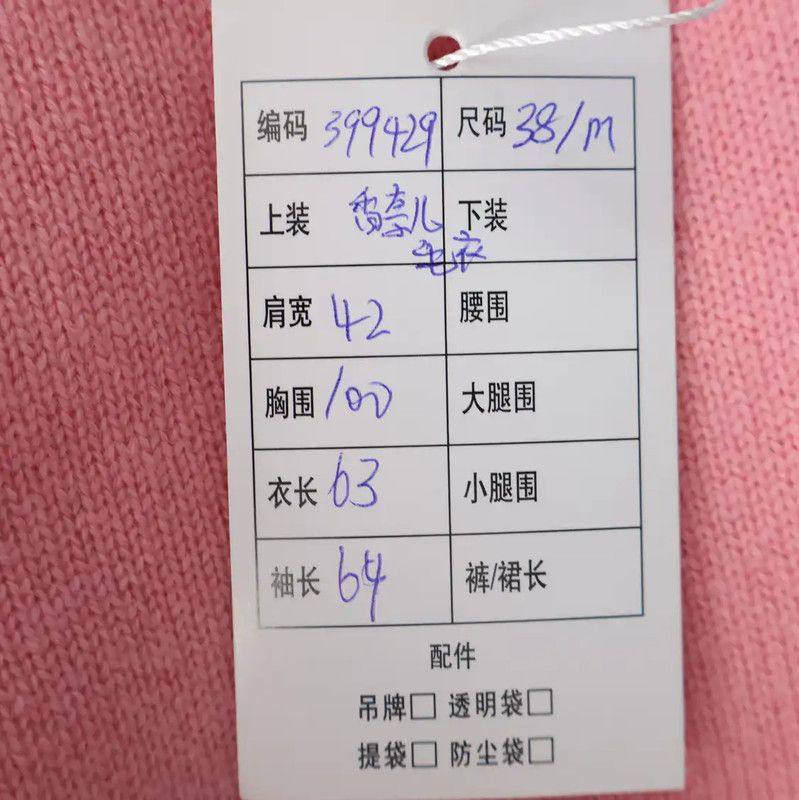 编码 399429 尺码 38/m
上装 香奈儿 下装
毛衣
肩宽 42 腰围
胸围 100 大腿围
衣长 63 小腿围
袖长 64 裤/裙长
配件
吊牌□ 透明袋□
提袋□ 防尘袋□